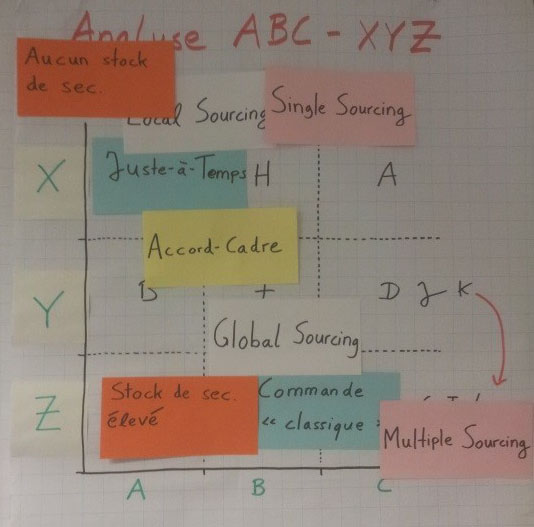 Analyse ABC - XYZ
Aucun stock
de sec.
Local Sourcing
Single Sourcing
X
Juste-à-Temps
H
A
Accord-Cadre
Y
D J K
Global Sourcing
Z
Stock de sec.
élevé
Commande
« classique »
Multiple Sourcing
A
B
C